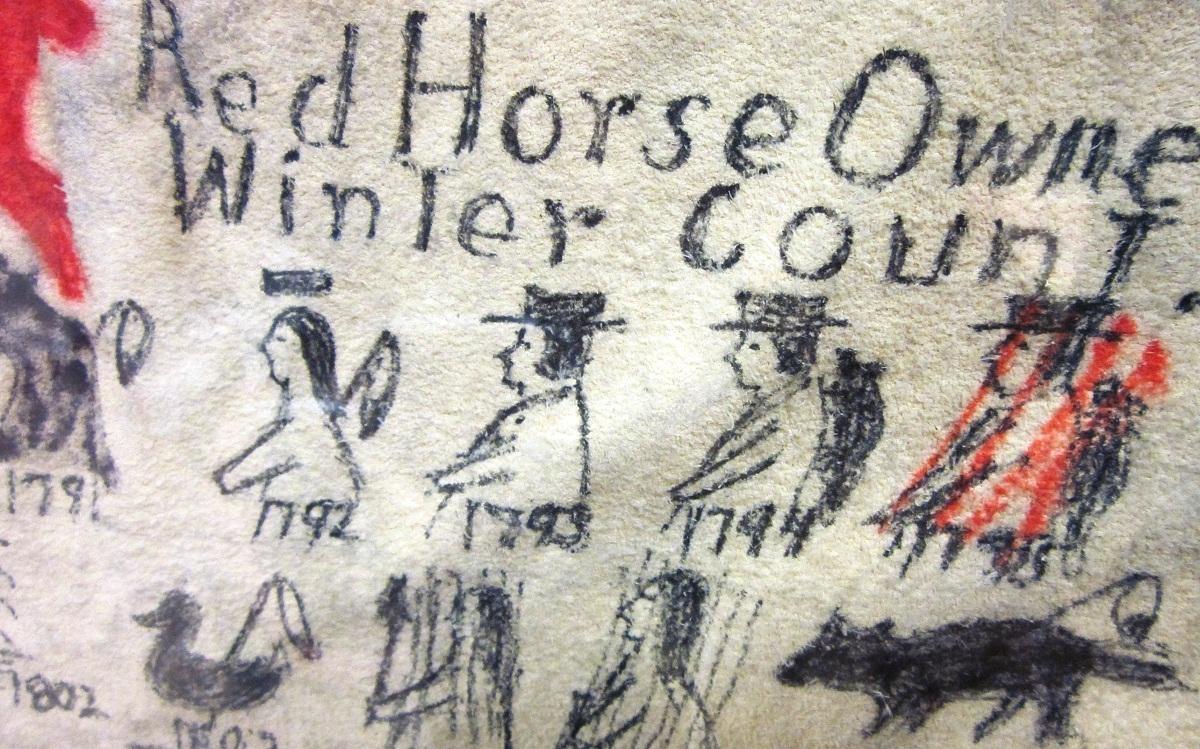 Red Horse Owne
Winter Count.
1791
1792
1793
1794
1802